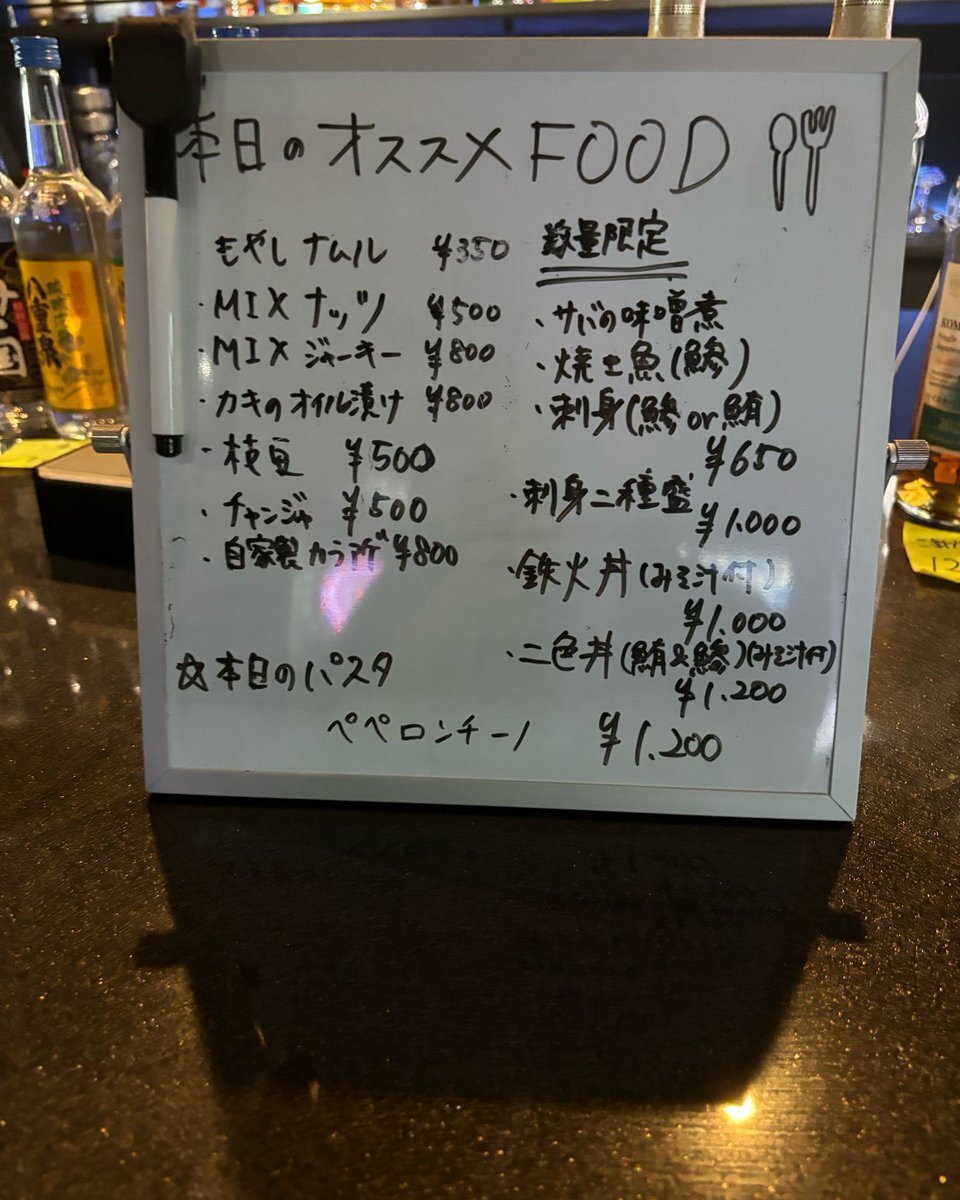 本日のオススメFOOD
もやしナムル ¥350
・MIXナッツ ¥500
・MIXジャーキー ¥800
・カキのオイル漬け ¥800
・枝豆 ¥500
・チャンジャ ¥500
・自家製カラ所゛ ¥800
☆本日のパスタ
ペペロンチーノ ¥1.200
数量限定
・サバの味噌煮
・焼き魚(鯵)
・刺身(鯵or鮪)
¥650
・刺身二種盛
¥1.000
・鉄火丼(みそ汁付)
¥1.000
・二色丼(鮪&鯵)(みそ汁付)
¥1.200
八重泉
12